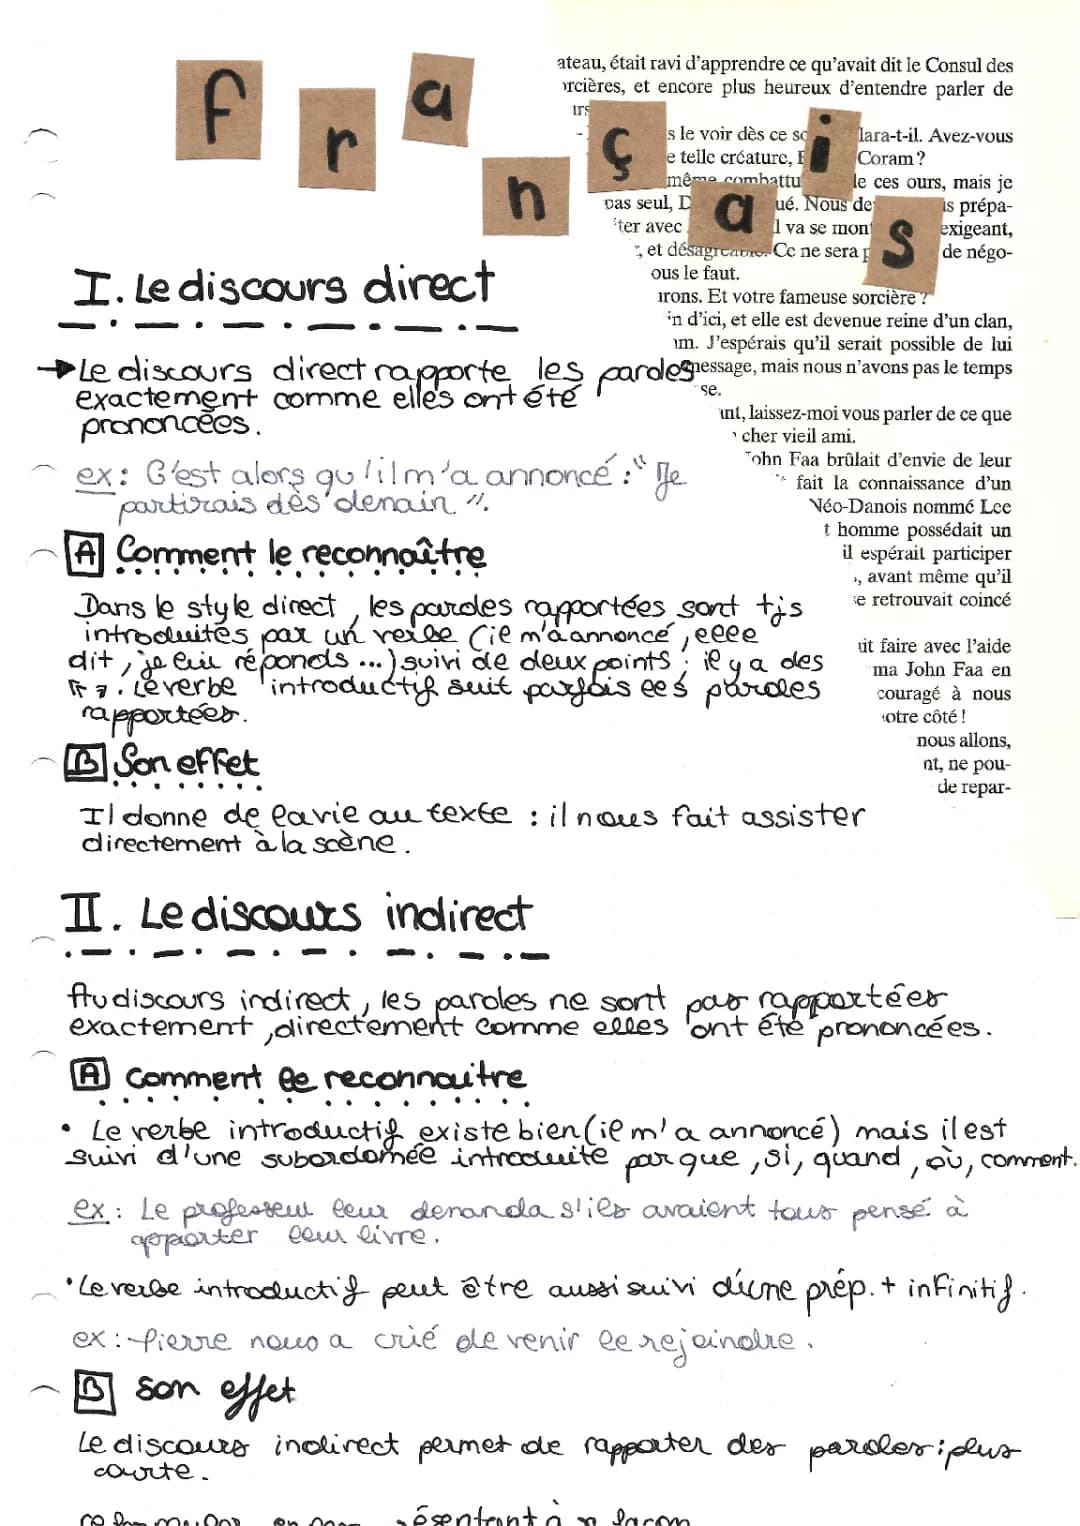 français
ateau, était ravi d'apprendre ce qu'avait dit le Consul des
orcières, et encore plus heureux d'entendre parler de
urs
s le voir dès ce so lara-t-il. Avez-vous
e telle créature, F Coram ?
même combattu le ces ours, mais je
pas seul, D ué. Nous de is prépa-
ter avec l va se mon exigeant,
, et désagréable. Ce ne sera p de négo-
ous le faut.
irons. Et votre fameuse sorcière ?
in d'ici, et elle est devenue reine d'un clan,
am. J'espérais qu'il serait possible de lui
message, mais nous n'avons pas le temps
se.
ant, laissez-moi vous parler de ce que
cher vieil ami.
John Faa brûlait d'envie de leur
fait la connaissance d'un
Néo-Danois nommé Lee
t homme possédait un
il espérait participer
, avant même qu'il
se retrouvait coincé
ait faire avec l'aide
ma John Faa en
couragé à nous
otre côté !
nous allons,
nt, ne pou-
de repar-
I. Le discours direct
→ Le discours direct rapporte les paroles
exactement comme elles ont été
prononcées.
ex : C'est alors qu'il m'a annoncé : "Je
partirais dès demain".
A Comment le reconnaître
Dans le style direct, les paroles rapportées sont tjs
introduites par un verbe (il m'a annoncé, elle
dit, je lui réponds ...) suivi de deux points ; il y a des
. Le verbe introductif suit parfois les paroles
rapportées.
B Son effet
Il donne de la vie au texte : il nous fait assister
directement à la scène.
II. Le discours indirect
Au discours indirect, les paroles ne sont pas rapportées
exactement, directement comme elles ont été prononcées.
A Comment le reconnaitre
• Le verbe introductif existe bien (il m'a annoncé) mais il est
suivi d'une subordonnée introduite par que, si, quand, où, comment.
ex : Le professeur leur demanda s'ils avaient tous pensé à
apporter leur livre.
• Le verbe introductif peut être aussi suivi d'une prép. + infinitif.
ex : Pierre nous a crié de venir le rejoindre.
B son effet
Le discours indirect permet de rapporter des paroles : plus
courte.